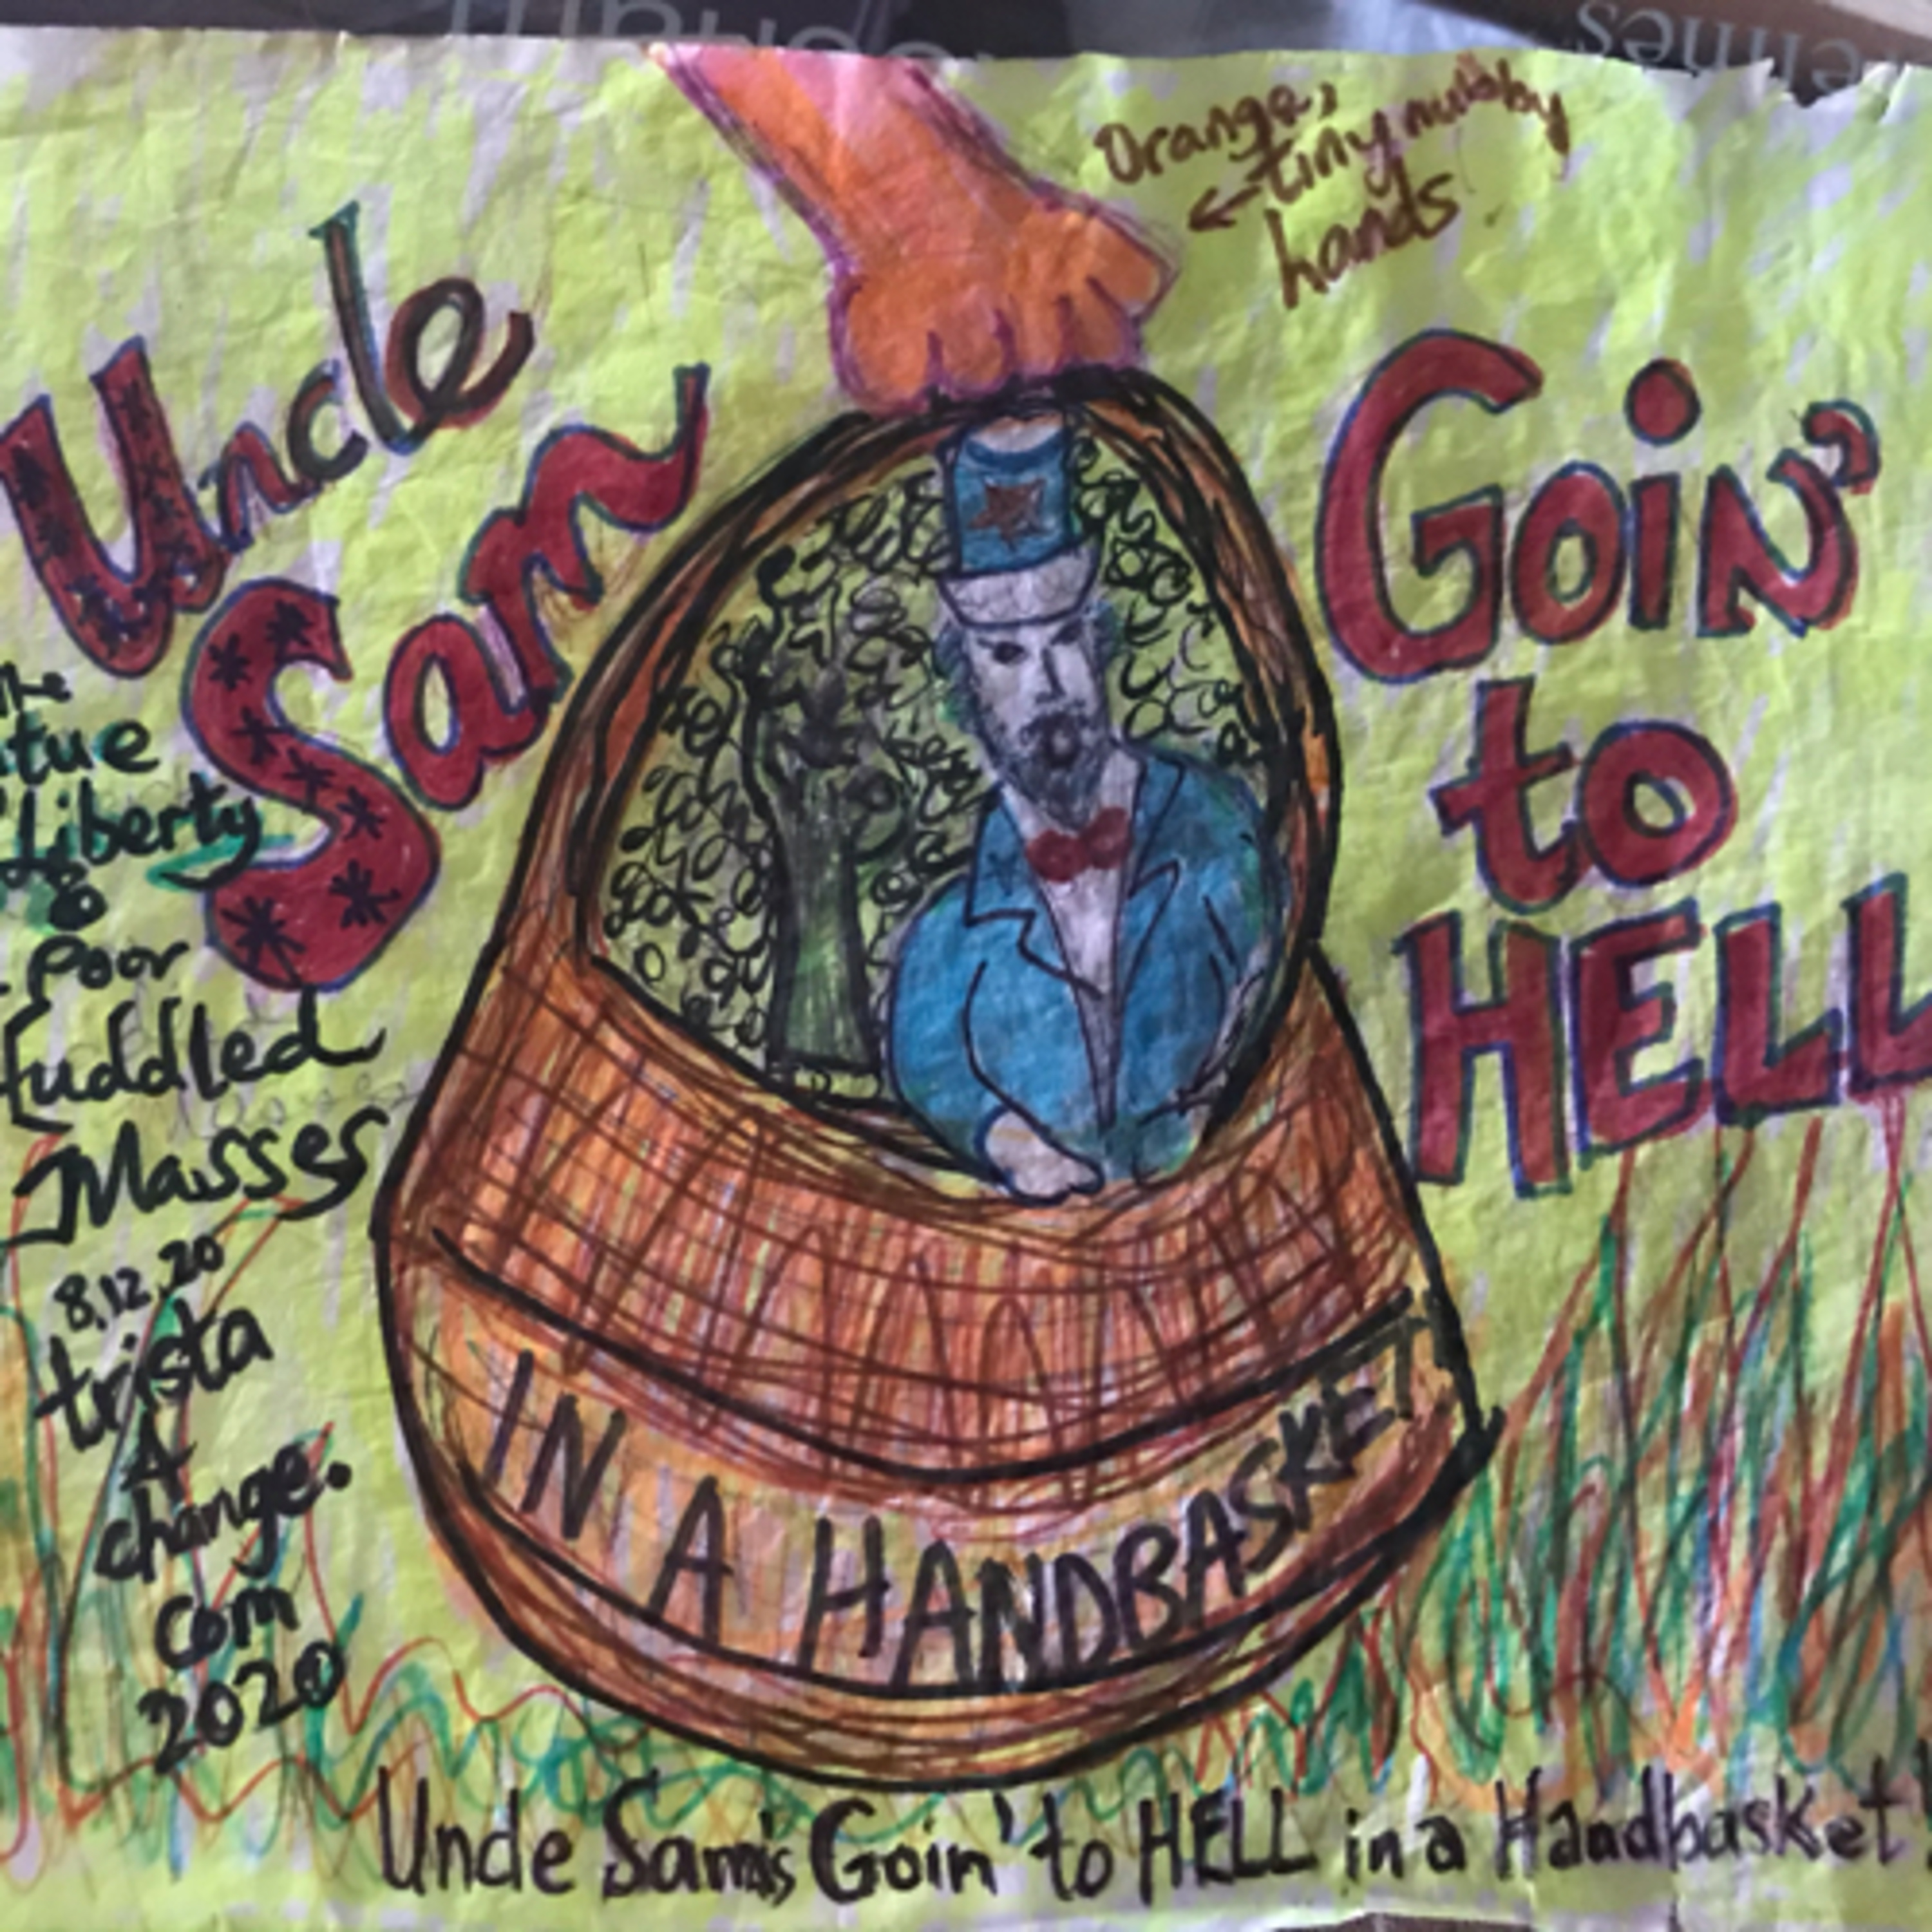 Orange,
tiny nubby
hands.
Uncle
Sam
Goin'
to
HELL
Liberty
&
Poor
fuddled
Masses
8.12.20
trista
A
change.
com
2020
IN A HANDBASKET
Uncle Sam's Goin' to HELL in a Handbasket!